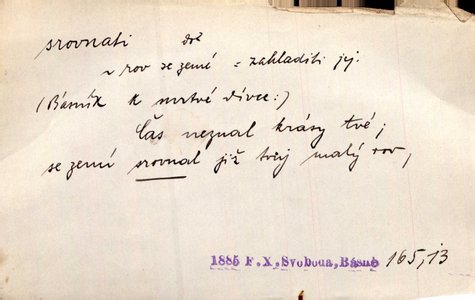 srovnati dok
~ rov se zemí = zahladiti jej.
(Básník k mrtvé dívce:)
Čas neznal krásy tvé;
se zemí srovnal již tvůj malý rov,
1885 F.X.Svoboda,Básně 165,13